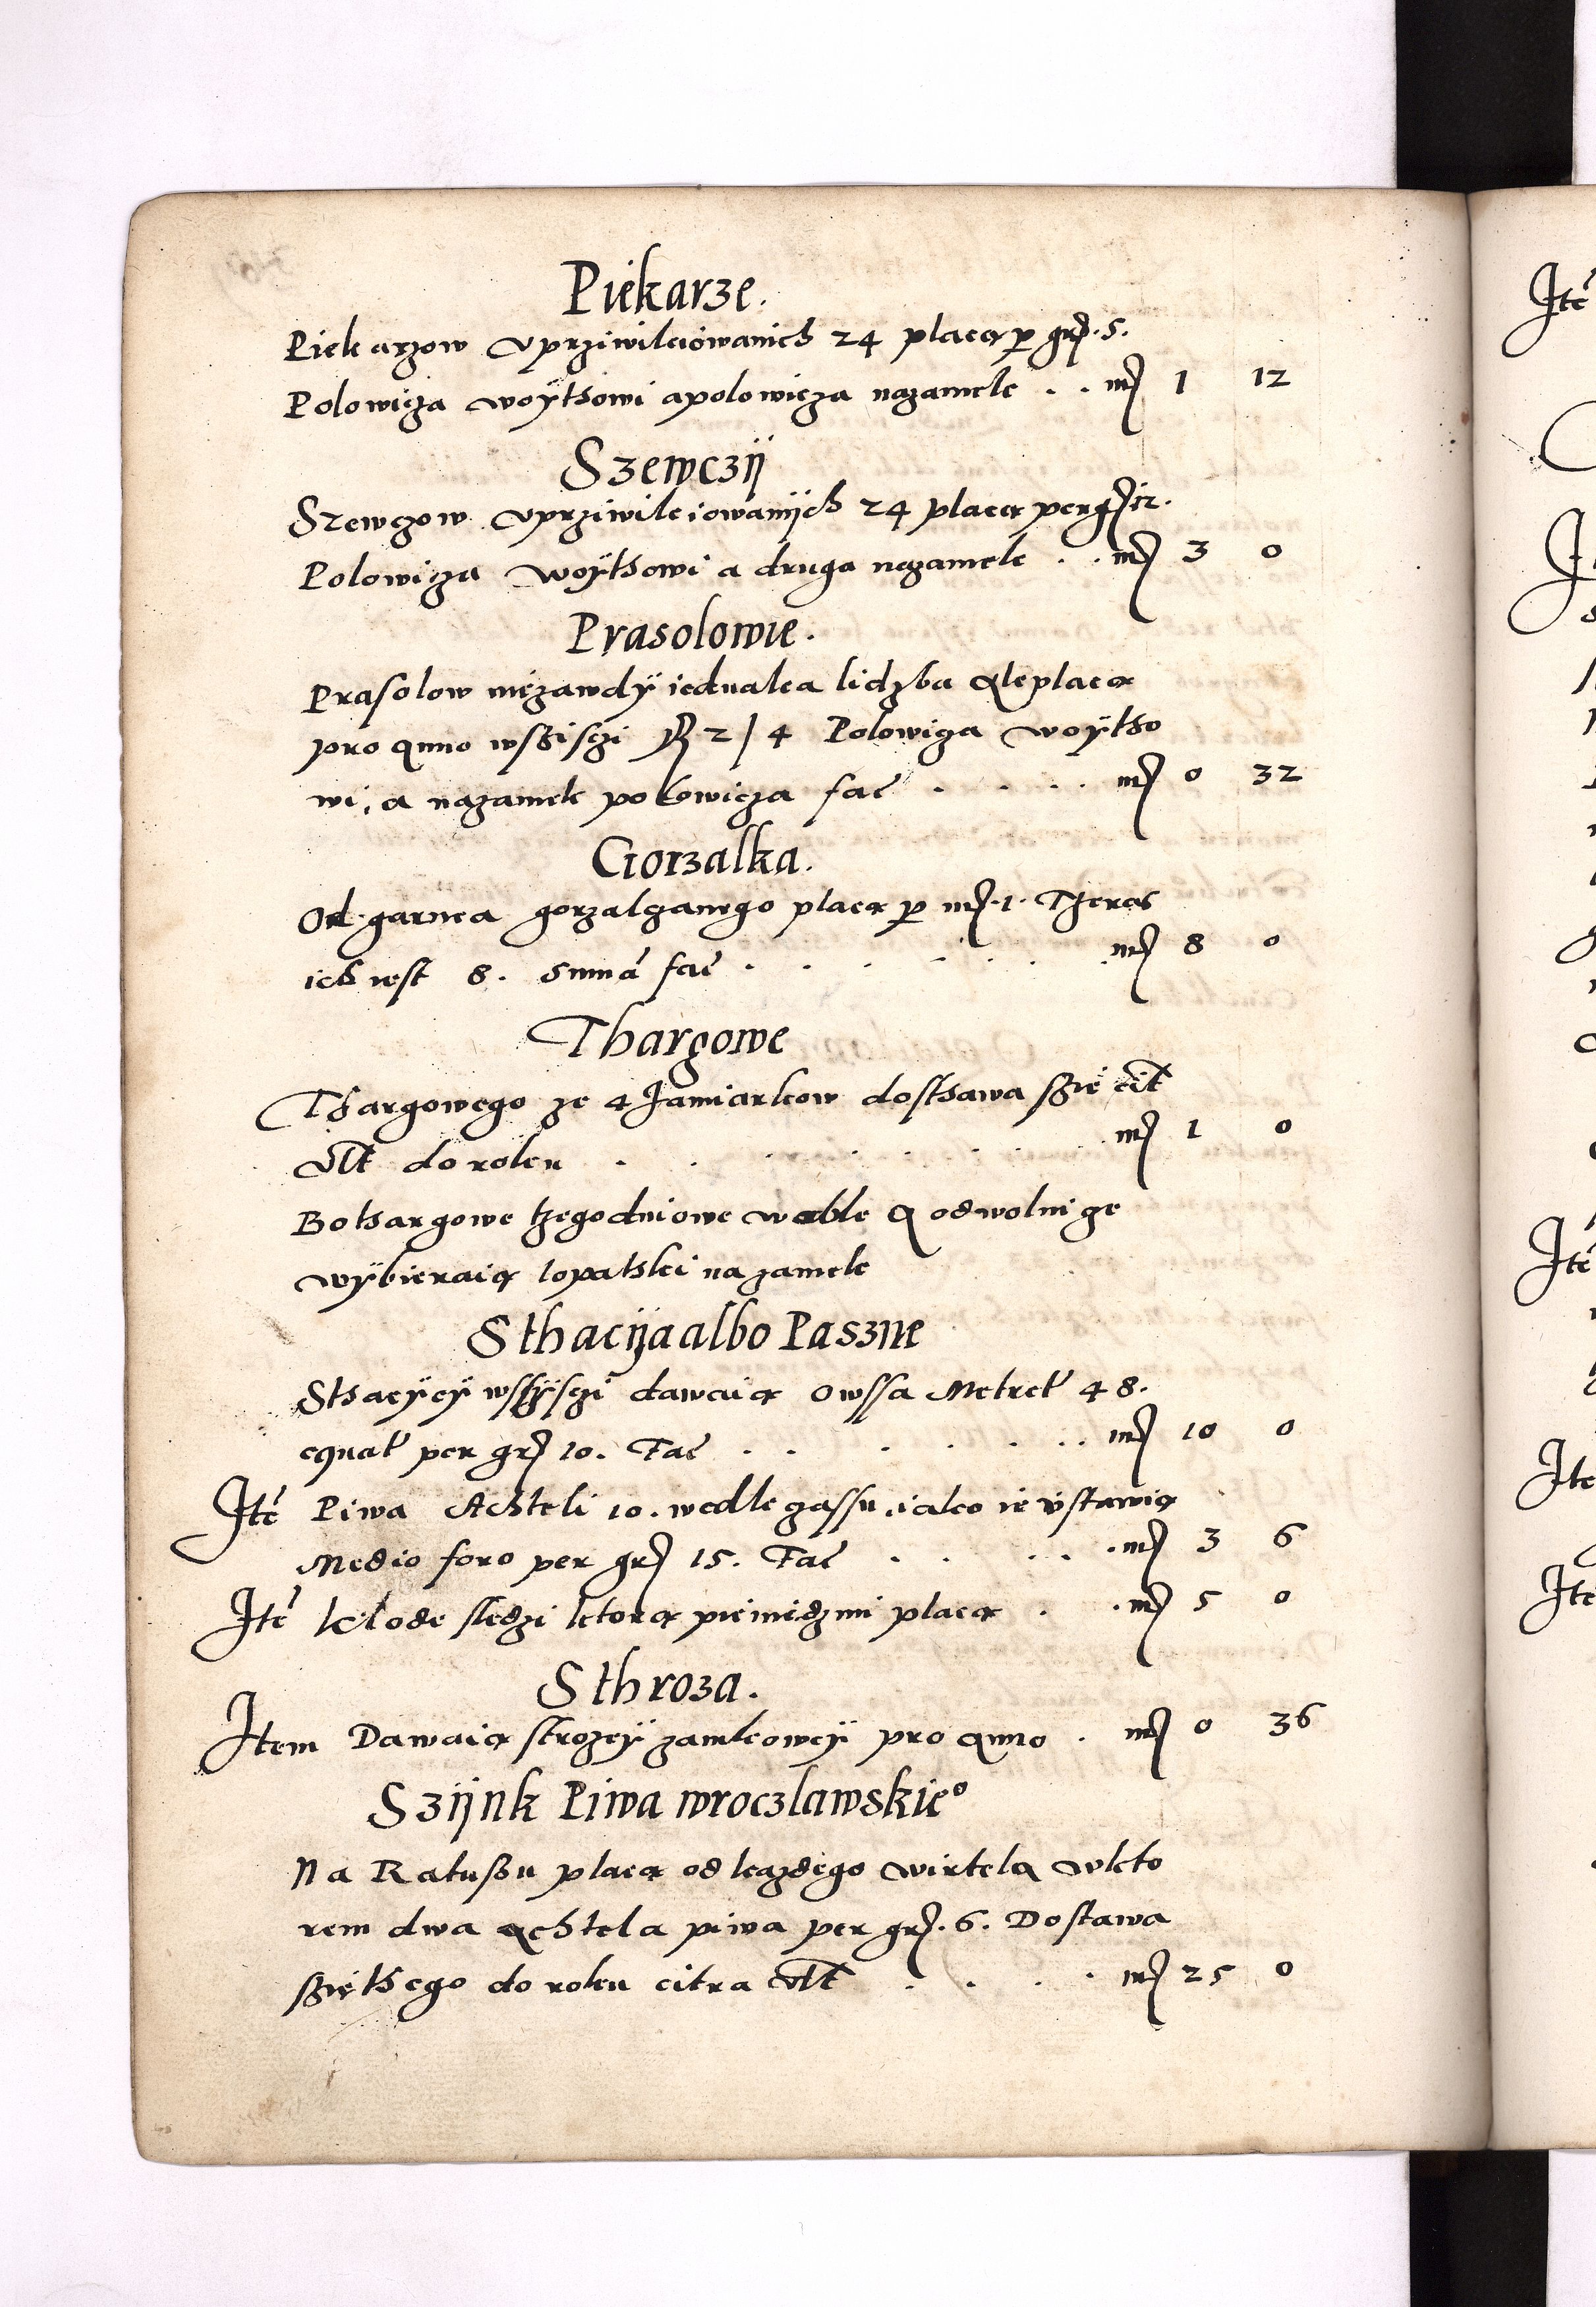 Piekarze.
Piekarzow vprziwileiowanich 24 placą p gr. 5.
Polowicza woythowi a polowicza nazamek . . mr 1 12
Szewczÿ
Szewczow vprziwileiowanÿch 24 placą per gr 12.
Polowicza woythowi a druga nazamek . . mr 3 0
Prasolowie.
Prasolow niezawdÿ iednaka lidzba Ale placą
pro Anno wszisczi 2/4 Polowiza woÿtho
wi, a nazamek polowicza fac . . . . mr 0 32
Gorzalka.
Od garnca gorzalczanego placą p mr. 1. Theras
ich iest 8. Summa fac . . . . . . mr 8 0
Thargowe
Thargowego ze 4 Jamiarkow dosthawa szię cit
vlt do roku . . . . . . . mr 1 0
Bo thargowe tzegodniowe wedle A odwolnize
wÿbieraią lopatski na zamek
Sthacÿa albo Paszne
Sthacÿcÿ wszÿsczi dawaią Owssa Metret 48.
equat per gr 10. Fac . . . . . . mr 10 0
Ite Piwa Achteli 10. wedle zassu, iako ie vstawią
Medio foro per gr 15. Fac . . . . . mr 3 6
Ite Klode sledzi ktorą pieniedzmi placą . . mr 5 0
Sthroza.
Item Dawaią strozeÿ zamkowey pro Anno . mr 0 36
Szÿnk Piwa wroczlawskie°
Na Ratuszu placą od kazdego wirtela wkto
rem dwa achtela piwa per gr. 6. Dostawa
szię thego do roku citra vlt . . . . mr 25 0
Ite
Ite
Ite
Ite